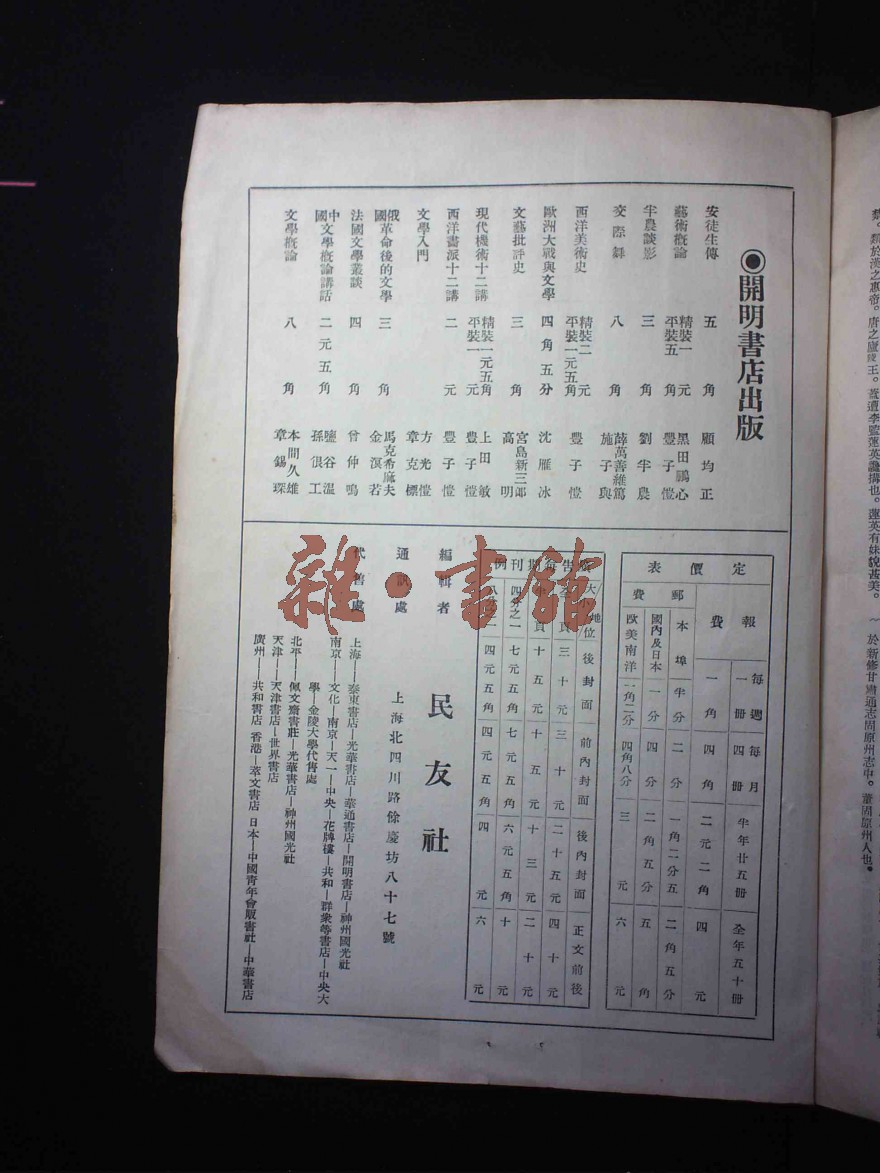 ◉開明書店出版
安徒生傳 五角 顧均正
藝術概論 精裝一元 平裝五角 黑田鵬心 豐子愷
半農談影 三角 劉半農
交際舞 八角 薛萬善維篤 施子與
西洋美術史 精裝二元 平裝一元五角 豐子愷
歐洲大戰與文學 四角五分 沈雁冰
文藝批評史 三角 宮島新三郎 高明
現代機術十二講 精裝一元五角 平裝一元 上田敏 豐子愷
西洋畫派十二講 二元 豐子愷
文學入門 方光燾 章克標
俄國革命後的文學 三角 馬克希麻夫 金溟若
法國文學叢談 四角 曾仲鳴
中國文學概論講話 二元五角 鹽谷溫 孫俍工
文學概論 八角 本間久雄 章錫琛
定價表
報費 每週一冊 一角 每月四冊 四角 半年廿五冊 二元二角 全年五十冊 四元
郵費
本埠 半分 二分 一角二分五 二角五分
國內及日本 一分 四分 二角五分 五角
歐美南洋 一角二分 四角八分 三元 六元
告每期刊例
大小/地位 後封面 前內封面 後內封面 正文前後
頁 三十元 三十元 二十五元 四十元
頁 十五元 十五元 十三元 二十元
四分之一 七元五角 七元五角 六元五角 十元
八 四元五角 四元五角 四元 六元
編輯者 民友社
通訊處 上海北四川路餘慶坊八十七號
代售處
上海—泰東書店—光華書店—華通書店—開明書店—神州國光社
南京—文化—南京—天一—中央—花牌樓—共和—群衆等書店—中央大
學—金陵大學代售處
北平—佩文齋書莊—光華書店—神州國光社
天津—天津書店—世界書店
廣州—共和書店 香港—萃文書店 日本—中國青年會販書社—中華書店
雜·書館
於新修甘肅通志固原州志中。董固原州人也。